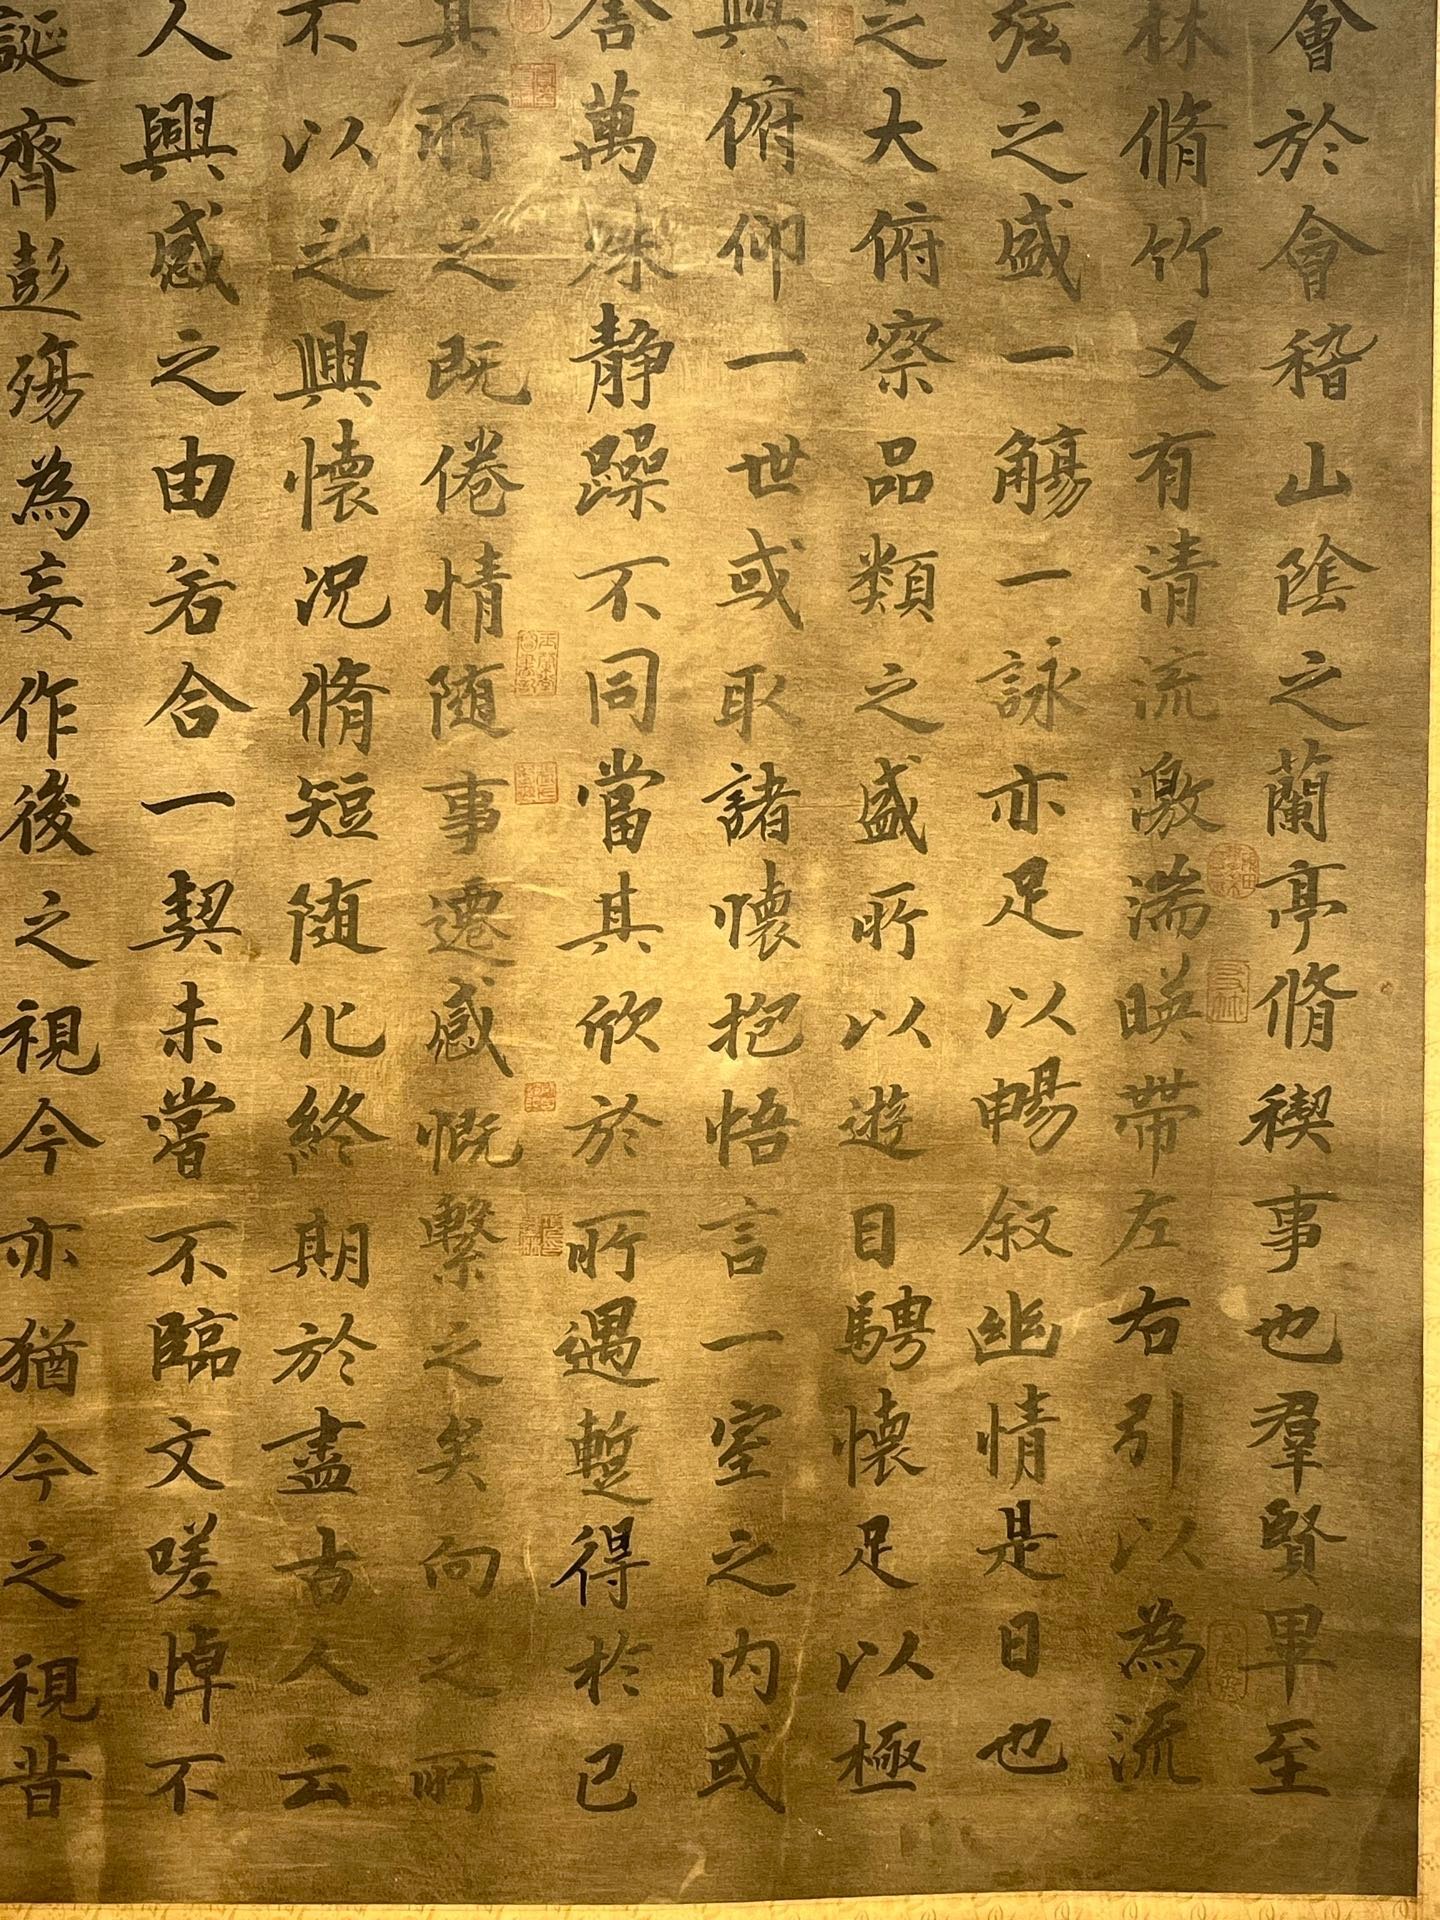 會於會稽山陰之蘭亭脩禊事也羣賢畢至
林脩竹又有清流激湍暎帶左右引以為流
弦之盛一觴一詠亦足以暢叙幽情是日也
之大俯察品類之盛所以遊目騁懷足以極
興俯仰一世或取諸懷抱悟言一室之內或
舍萬殊静躁不同當其欣於所遇蹔得於己
其所之既倦情随事遷感慨繫之矣向之所
不以之興懷況脩短随化終期於盡古人云
人興感之由若合一契未甞不臨文嗟悼不
誕齊彭殤為妄作後之視今亦猶今之視昔